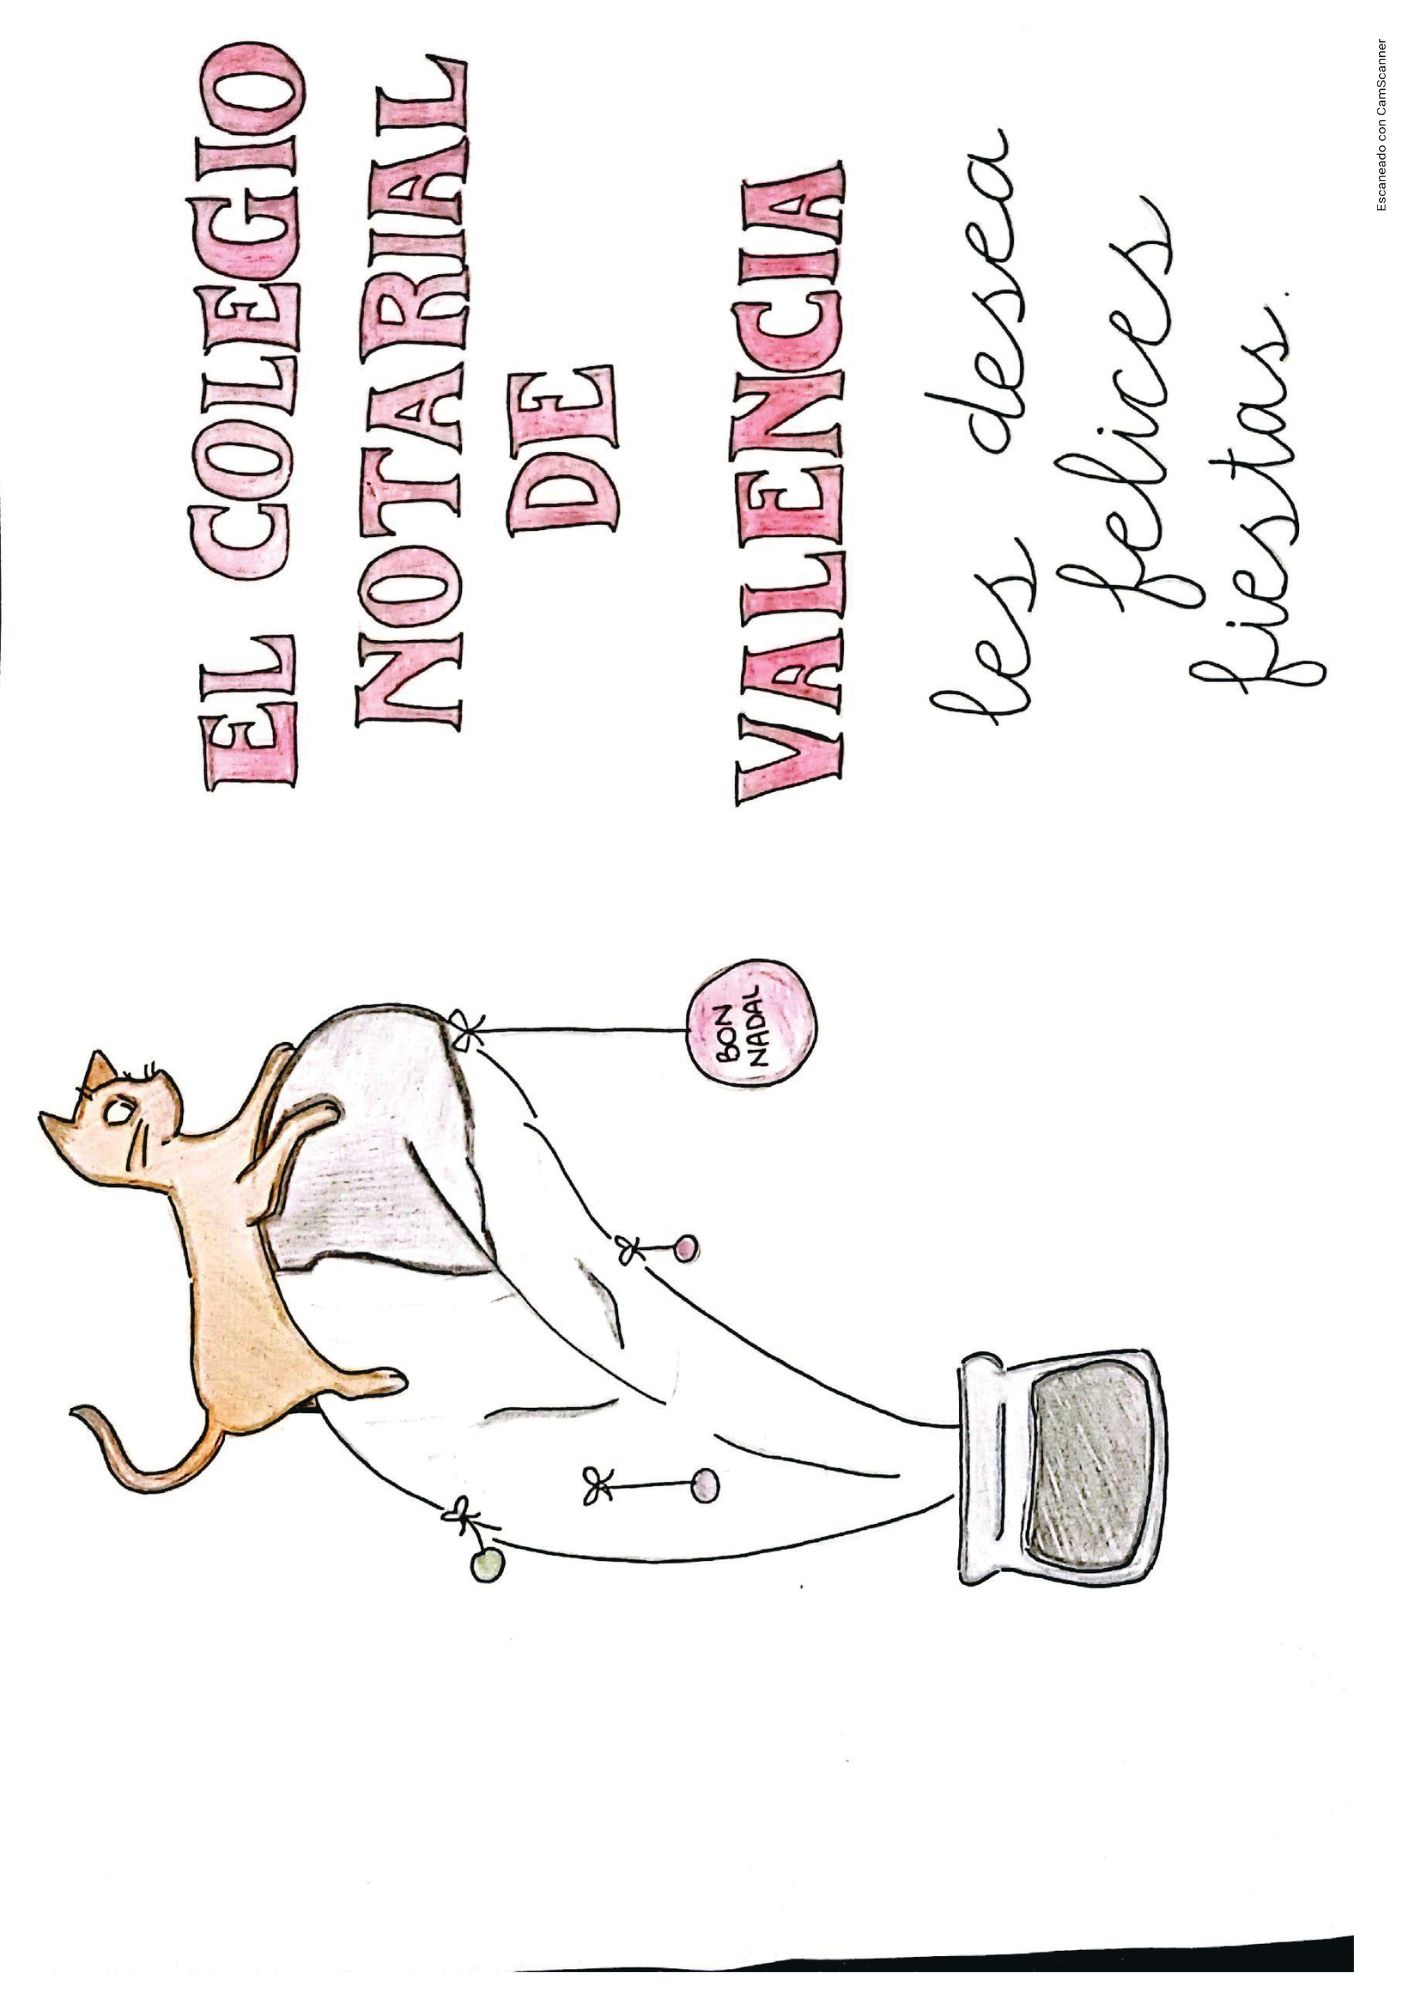 EL COLEGIO
NOTARIAL
DE
VALENCIA
les desea
felices
fiestas.
BON
NADAL
Escaneado con CamScanner